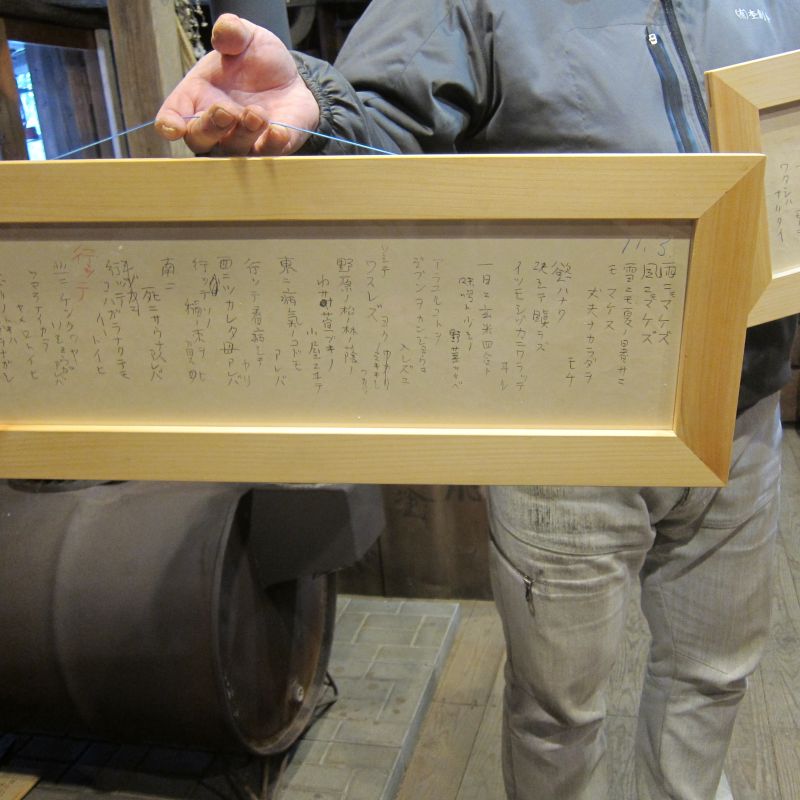 11.3.
雨ニモマケズ
風ニモマケズ
雪ニモ夏ノ暑サニ
モマケヌ
丈夫ナカラダヲ
モチ
慾ハナク
決シテ瞋ラズ
イツモシヅカニワラッテ
ヰル
一日ニ玄米四合ト
味噌ト少シノ
野菜ヲタベ
アラユルコトヲ
ジブンヲカンジョウニ
入レズニ
ヨク
ワカリ
ソシテ
ワスレズ
野原ノ松ノ林ノ蔭ノ
小サナ萱ブキノ
小屋ニヰテ
東ニ病気ノコドモ
アレバ
行ッテ看病シテ
ヤリ
西ニツカレタ母アレバ
行ッテソノ
稲ノ束ヲ負ヒ
南ニ
死ニサウナ人アレバ
行ッテ
コハガラナクテモ
イヽトイヒ
行ッテ
北ニケンクヮヤ
ソショウガ
アレバ
ツマラナイカラ
ヤメロトイヒ
ワタシハ
ナリタイ